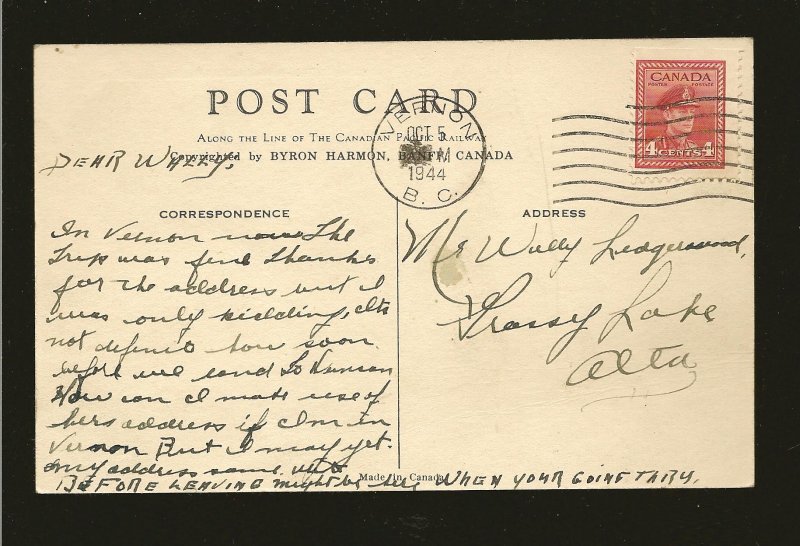 POST CARD
ALONG THE LINE OF THE CANADIAN PACIFIC RAILWAY
Copyrighted by BYRON HARMON, BANFF, CANADA
VERNON
OCT 5
M
1944
B. C.
CANADA
POSTES POSTAGE
4 CENTS 4
DEAR WALLY,
CORRESPONDENCE
In Vernon now The
Trip was fine Thanks
for the address but I
was only kidding, its
not definite how soon
before we land
How can I make use of
hers address if I'm in
Vernon But I may yet.
my address same
BEFORE LEAVING might be see WHEN YOUR GOING THRU.
ADDRESS
Mr Wally Ledgerwood,
Grassy Lake
Alta
Made in Canada